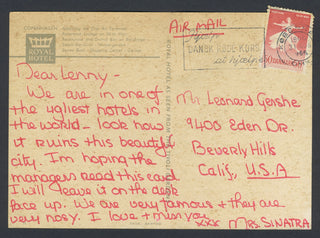 COPENHAGEN
ROYAL
HOTEL
AIR MAIL
DANSK RØDE KORS
Dear Lenny -
We are in one of
the ugliest hotels in
the world - look how
it RUINS this beautiful
city. I'm hoping the
managers read this card
I will leave it on the desk
face up. We are very famous + they are
very nosy. I love + miss you
xxx Mrs. SINATRA
Mr Leonard Gershe
9400 Eden Dr.
Beverly Hills
Calif, U.S.A